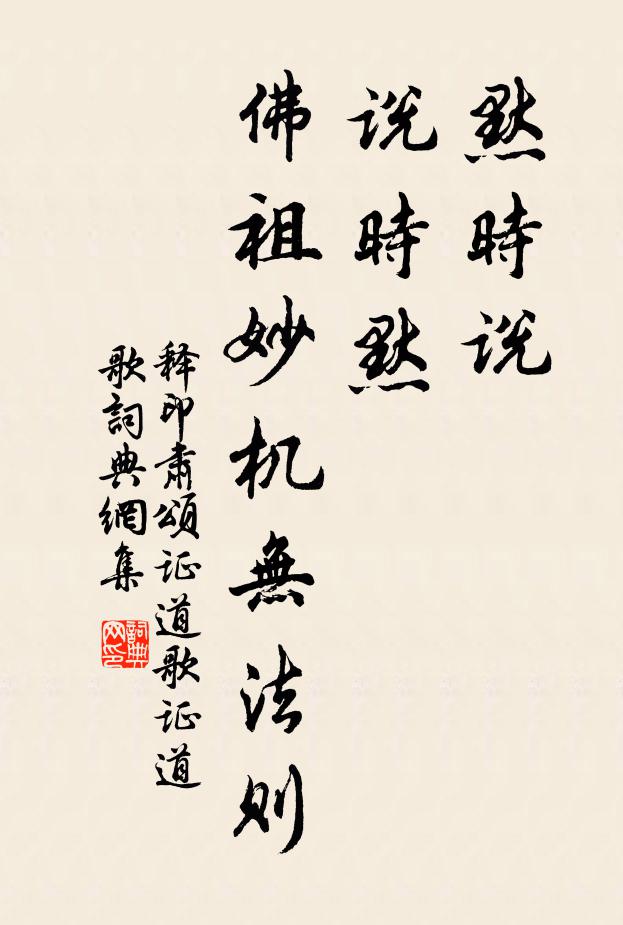 默時説
説時默
佛祖妙机無法則
释印肃頌证道歌证道
歌詞典網集
詞典
网印